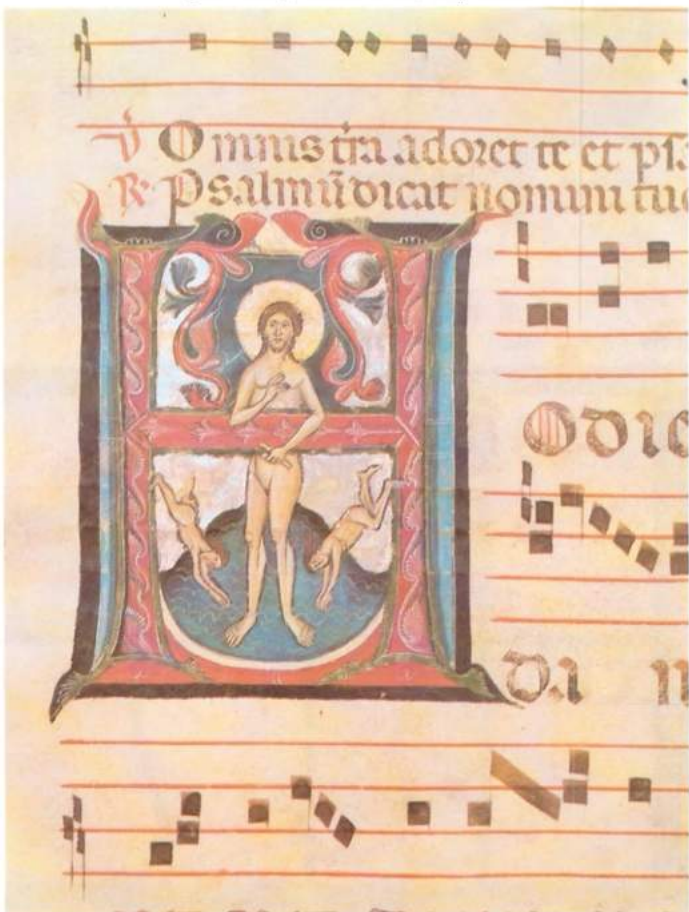 V Omnis tr̄a adoret te et psa
R Psalmū dicat nomini tuo
H
Odie
Da